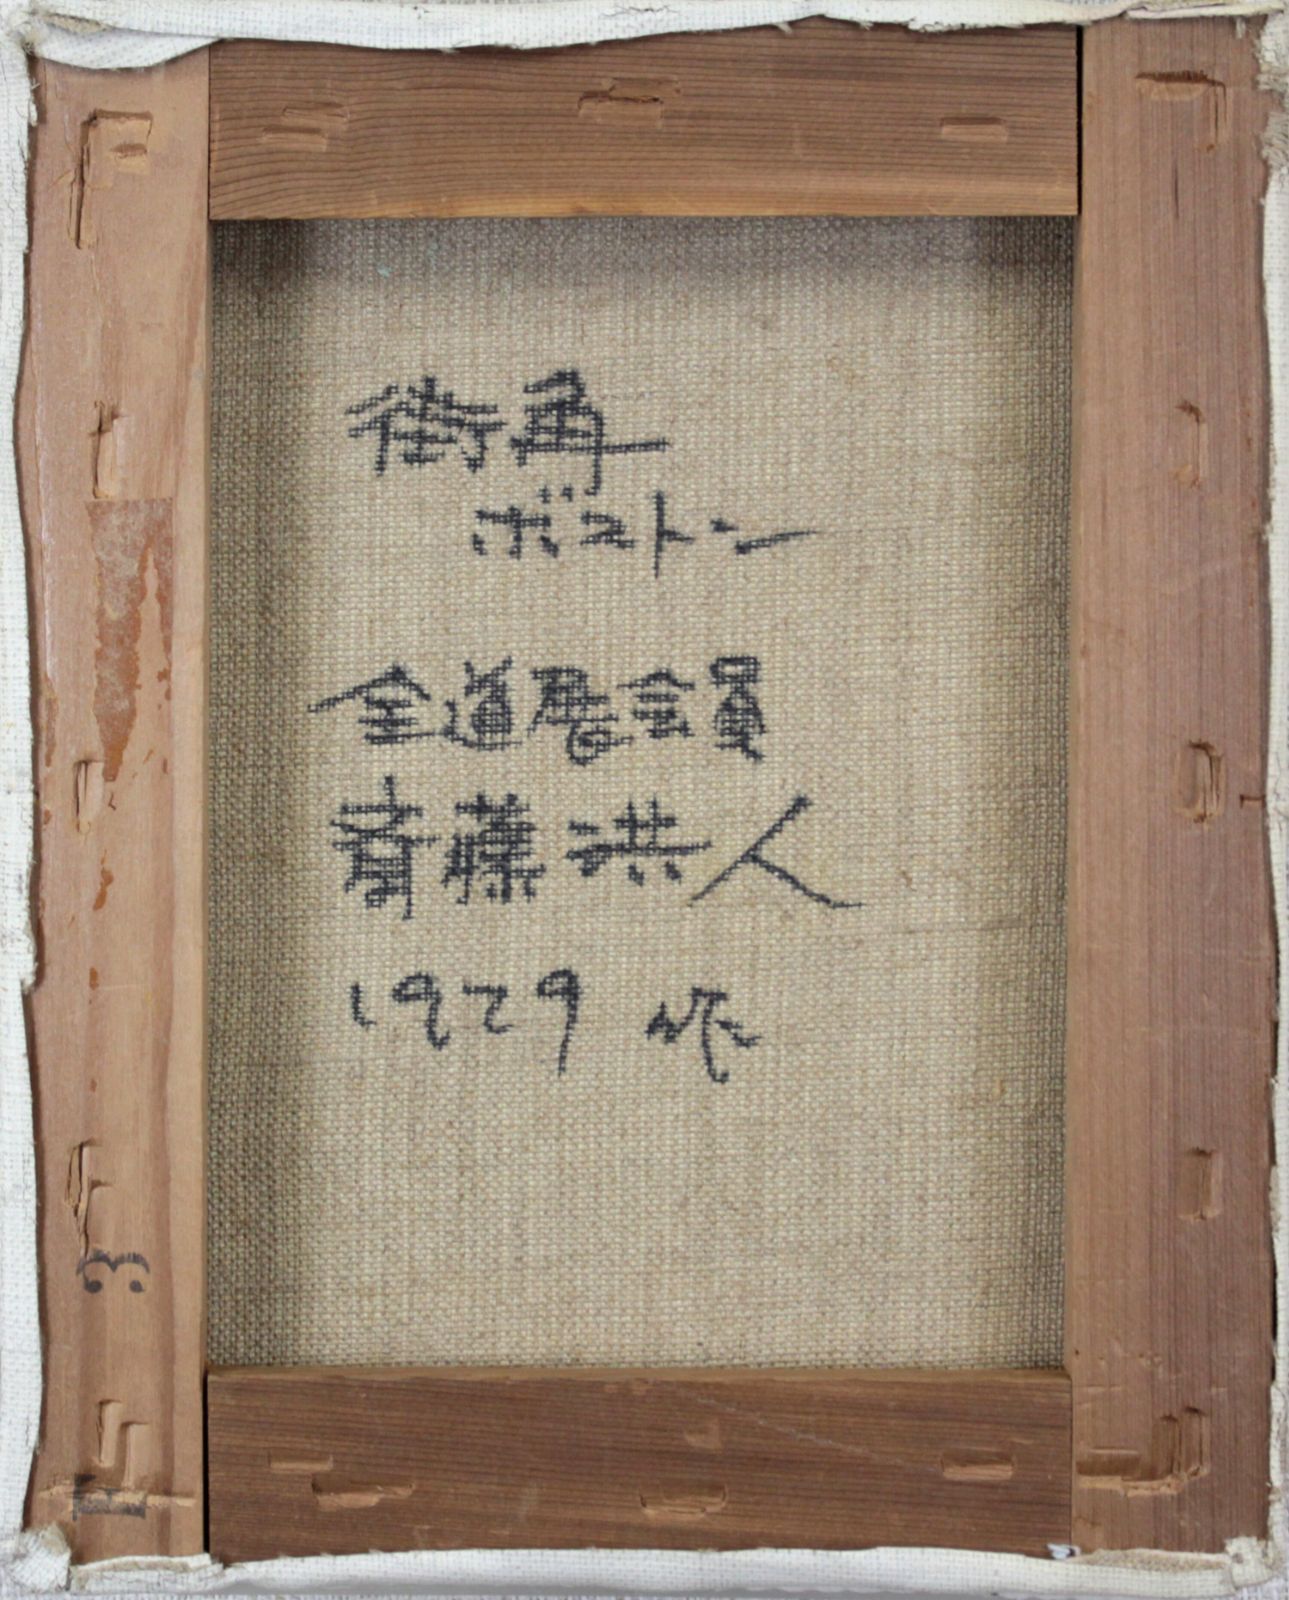 街角
ボストン
全道展会員
斉藤洪人
1979 作
F 3